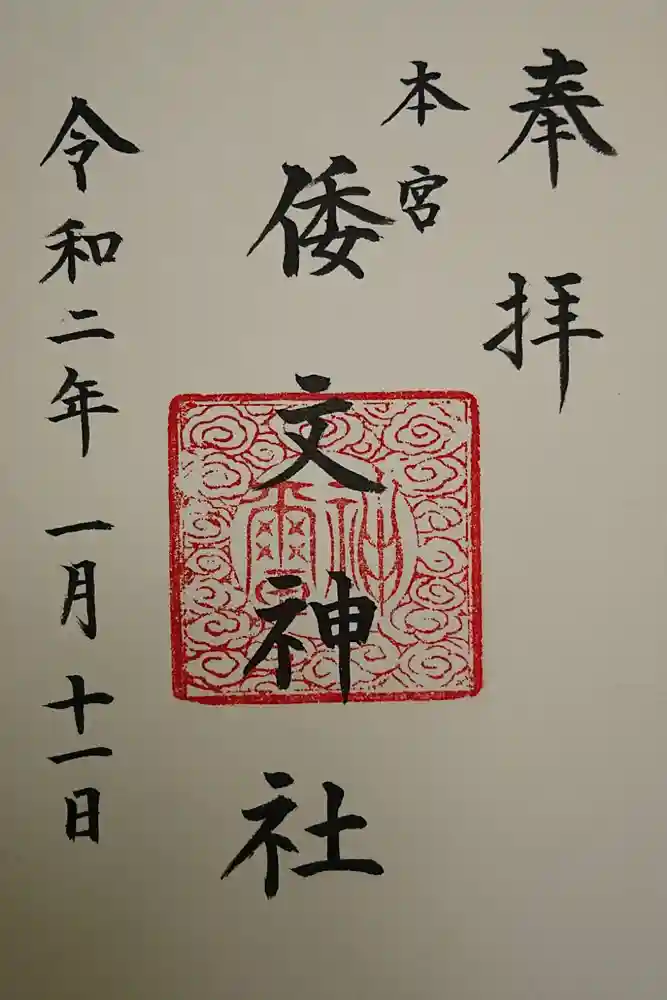 奉拝
本宮
倭文神社
神璽
令和二年一月十一日